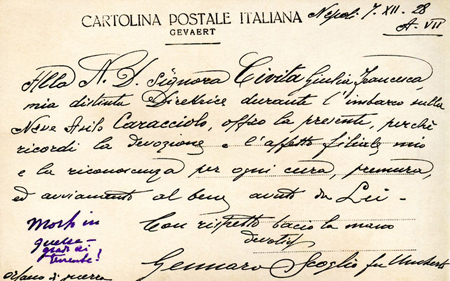 CARTOLINA POSTALE ITALIANA
GEVAERT
Napoli 7-XII-28
A-VII
Alla N. D. Signora Civita Giulia Francesca,
mia distinta Direttrice durante l'imbarco sulla
Nave Asilo Caracciolo, offro la presente, perchè
ricordi la devozione e l'affetto filiale mio
e la riconoscenza per ogni cura, premura,
ed avviamento al bene avuto da Lei -
Con rispetto bacio la mano
devotis
Gennaro Scoglio fu Umberto
Morto in
guerra -
grado di
tenente!
orfano di guerra